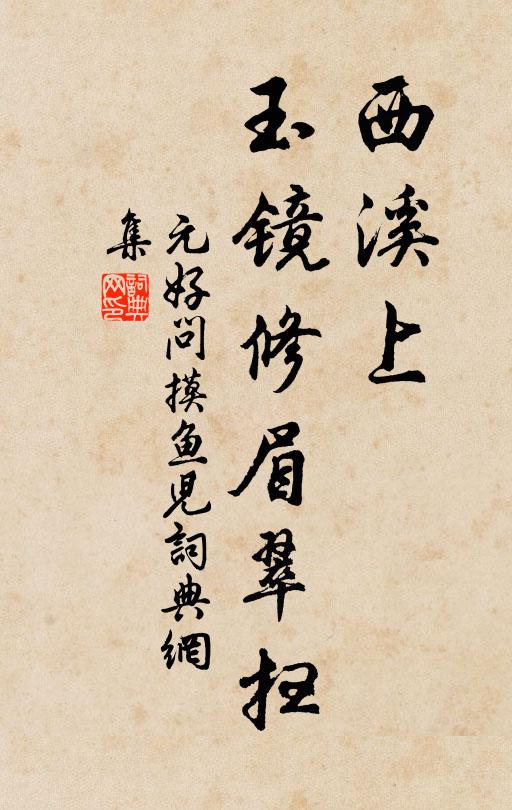 西溪上
玉镜修眉翠
元好问摸鱼兒詞典網
集
詞典网印